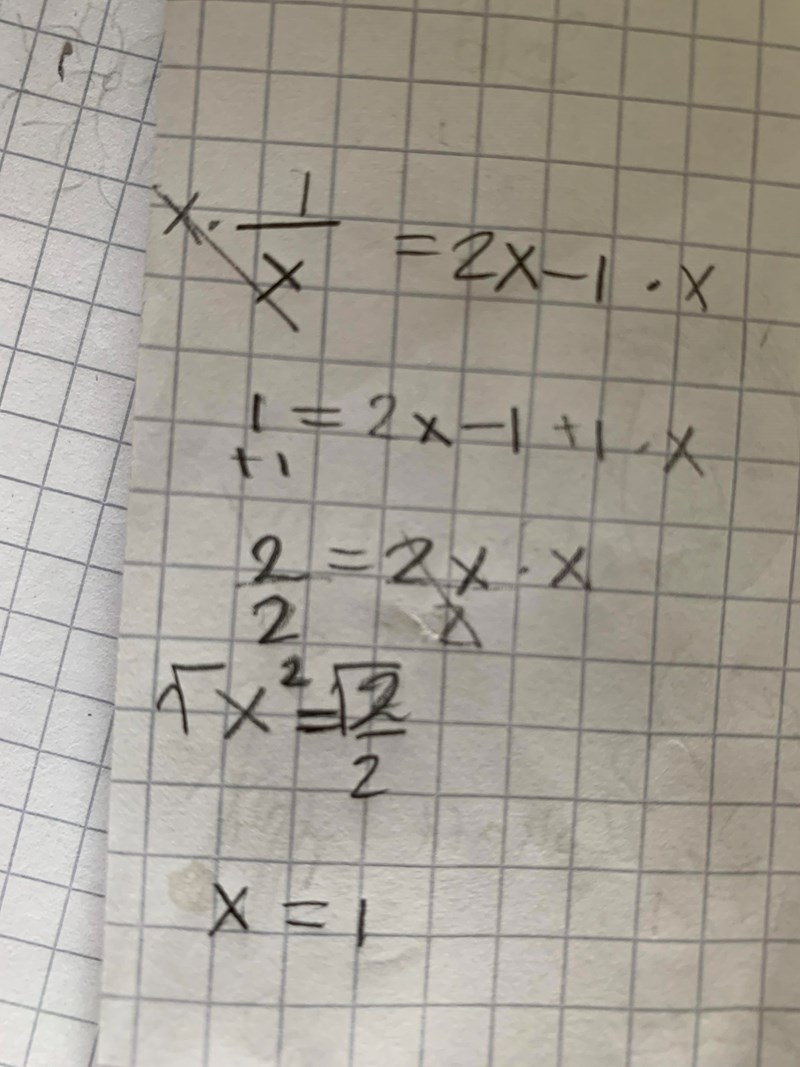 x · 1/x = 2x - 1 · x
1 = 2x - 1 + 1 · x
+1
2/2 = 2x · x / 2
√x² = √2/2
x = 1